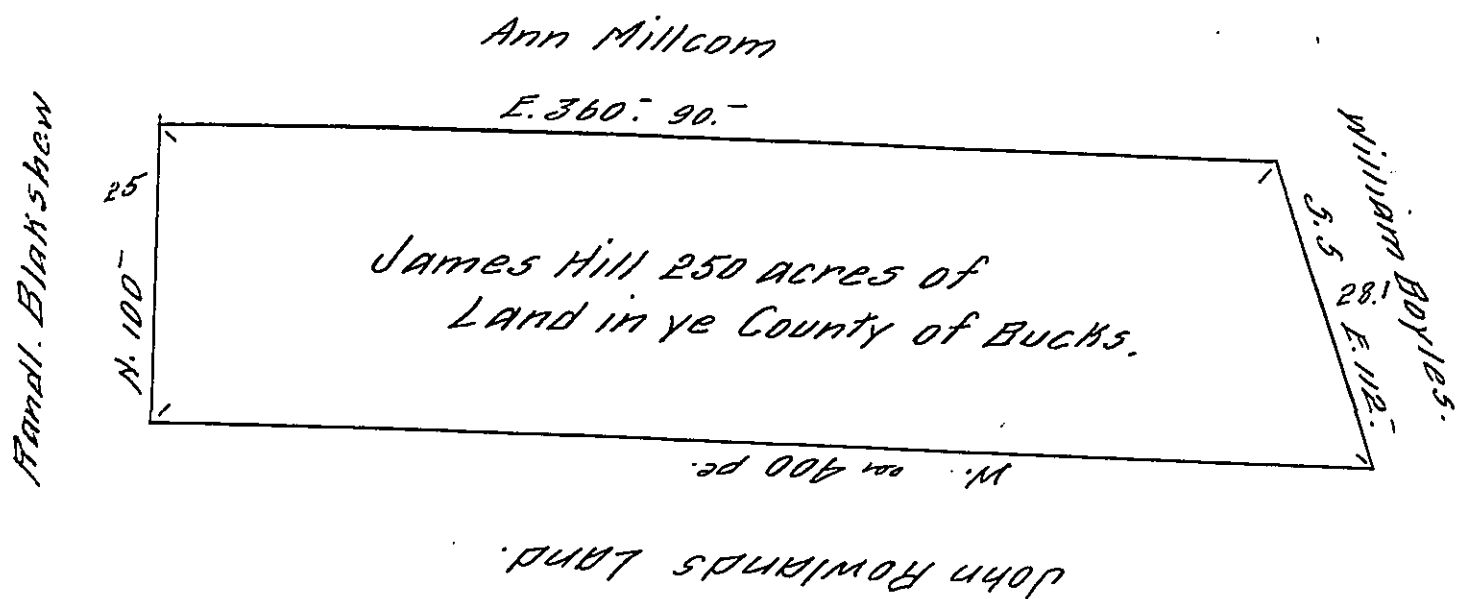 Ann Millcom
E. 360.- 90.-
Randl. Blakshaw
25
N. 100-
James Hill 250 acres of
Land in ye County of Bucks.
William Boyles.
S. 5 28.1 E. 112.-
W. 400 pe.
John Rowlands Land.